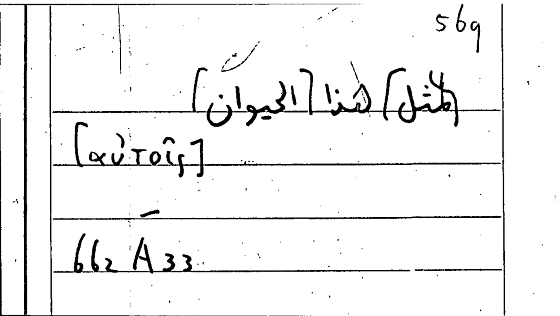 569
[لمثل] هذا [الحيوان]
[αὐτοῖς]
662 A 33